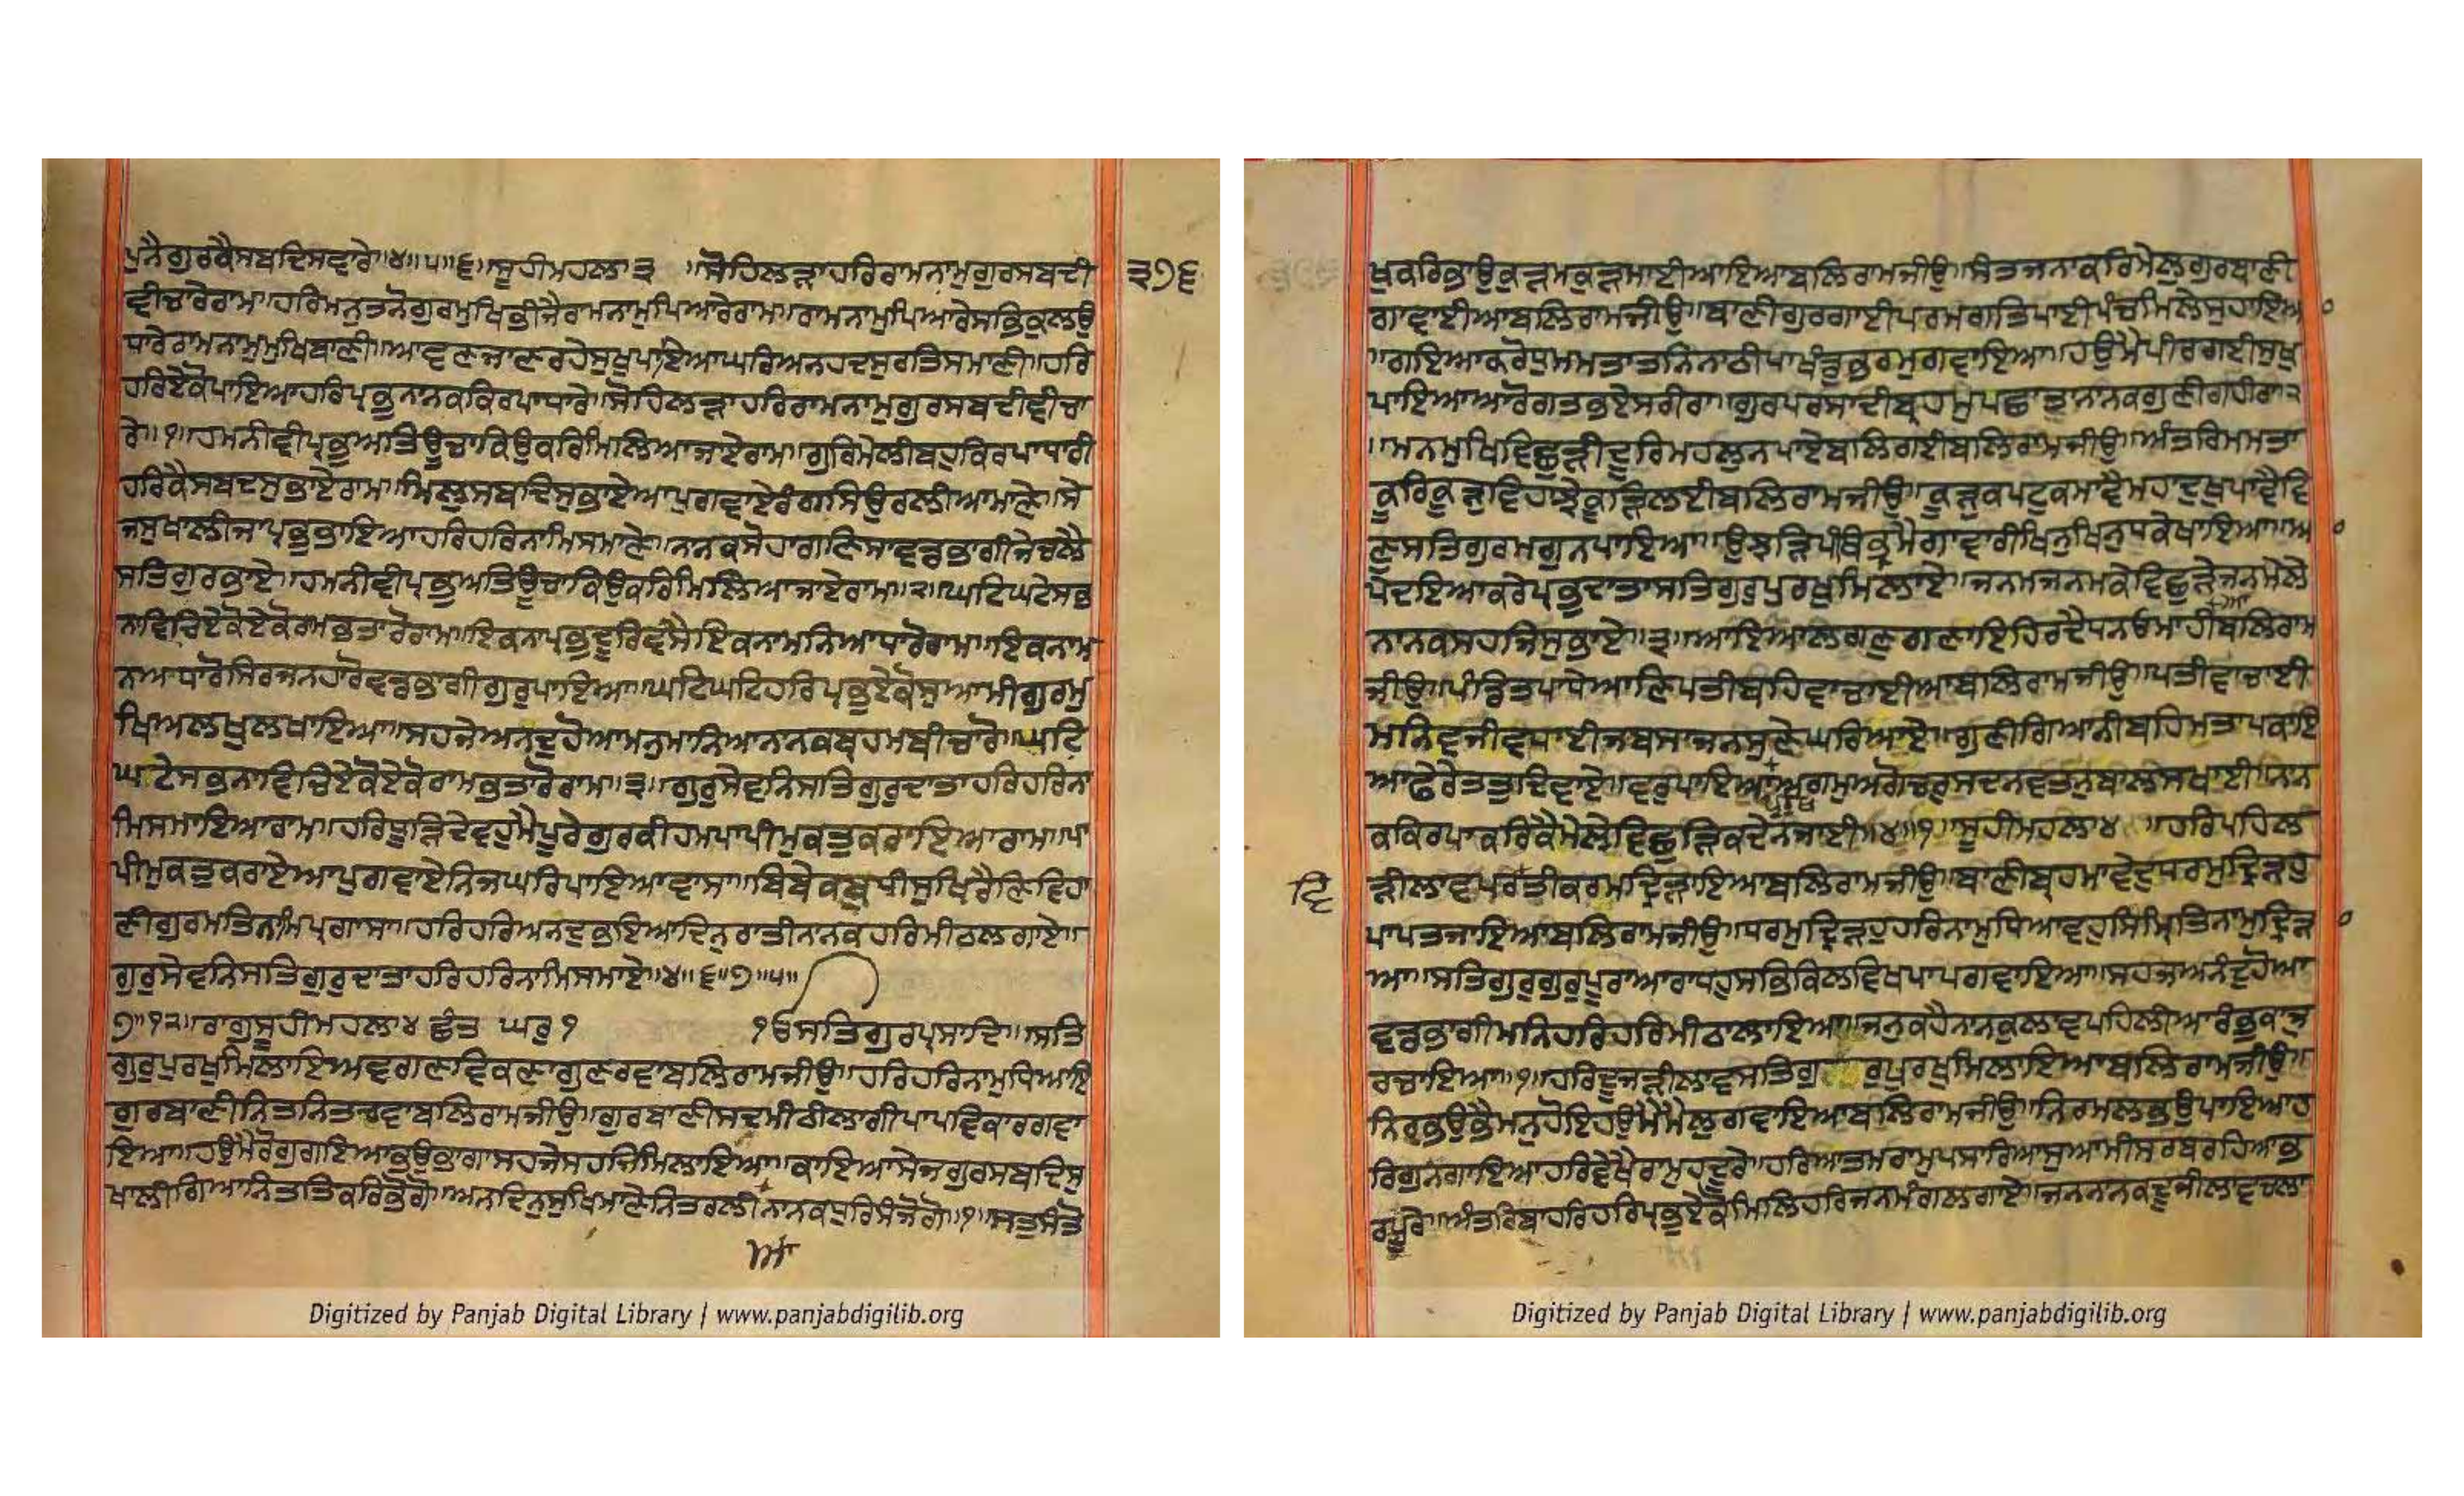 ਪੁਨੈਗੁਰਕੈਸਬਦਿਸਵਾਰੇ॥੪॥੫॥੬॥ਸੂਹੀਮਹਲਾ੩ ॥ਸੋਹਿਲੜਾਹਰਿਰਾਮਨਾਮੁਗੁਰਸਬਦੀ
੩੭੬
ਵੀਚਾਰੇਰਾਮ॥ਹਰਿਮਨੁਤਨੋਗੁਰਮੁਖਿਭੀਜੈਰਾਮਨਾਮੁਪਿਆਰੇਰਾਮ॥ਰਾਮਨਾਮੁਪਿਆਰੇਸਭਿਕੁਲਉ
ਧਾਰੇਰਾਮਨਾਮੁਮੁਖਿਬਾਣੀ॥ਆਵਣਜਾਣਰਹੇਸੁਖੁਪਾਇਆਘਰਿਅਨਹਦਸੁਰਤਿਸਮਾਣੀ॥ਹਰਿ
ਹਰਿਏਕੋਪਾਇਆਹਰਿਪ੍ਰਭੁਨਾਨਕਕਿਰਪਾਧਾਰੇ॥ਸੋਹਿਲੜਾਹਰਿਰਾਮਨਾਮੁਗੁਰਸਬਦੀਵੀਚਾ
ਰੇ॥੧॥ਹਮਨੀਵੀਪ੍ਰਭੁਅਤਿਊਚਾਕਿਉਕਰਿਮਿਲਿਆਜਾਏਰਾਮ॥ਗੁਰਿਮੇਲੀਬਹੁਕਿਰਪਾਧਾਰੀ
ਹਰਿਕੈਸਬਦਸੁਭਾਏਰਾਮ॥ਮਿਲੁਸਬਦਿਸੁਭਾਏਆਪੁਗਵਾਏਰੰਗਸਿਉਰਲੀਆਮਾਣੇ॥ਸੇ
ਜਸੁਖਾਲੀਜਾਪ੍ਰਭੁਭਾਇਆਹਰਿਹਰਿਨਾਮਿਸਮਾਣੇ॥ਨਨਕਸੋਹਾਗਣਿਸਾਵਡਭਾਗੀਜੇਚਲੈ
ਸਤਿਗੁਰਭਾਏ॥ਹਮਨੀਵੀਪ੍ਰਭੁਅਤਿਊਚਾਕਿਉਕਰਿਮਿਲਿਆਜਾਏਰਾਮ॥੨॥ਘਟਿਘਟੇਸਭ
ਨਾਵਿਚਿਏਕੋਏਕੋਰਾਮਭਤਾਰੋਰਾਮ॥ਇਕਨਾਪ੍ਰਭੁਦੂਰਿਵਸੈਇਕਨਾਮਨਿਆਧਾਰੋਰਾਮ॥ਇਕਨਾਮ
ਨਆਧਾਰੋਸਿਰਜਨਹਾਰੋਵਡਭਾਗੀਗੁਰੁਪਾਇਆ॥ਘਟਿਘਟਿਹਰਿਪ੍ਰਭੁਏਕੋਸੁਆਮੀਗੁਰਮੁ
ਖਿਅਲਖੁਲਖਾਇਆ॥ਸਹਜੇਅਨਦੁਹੋਆਮਨੁਮਾਨਿਆਨਨਕਬ੍ਰਹਮਬੀਚਾਰੋ॥ਘਟਿ
ਘਟੇਸਭਨਾਵਿਚਿਏਕੋਏਕੋਰਾਮਭਤਾਰੋਰਾਮ॥੩॥ਗੁਰੁਸੇਵਨਿਸਤਿਗੁਰੁਦਾਤਾਹਰਿਹਰਿਨਾ
ਮਿਸਮਾਇਆਰਾਮ॥ਹਰਿਧੂੜਿਦੇਵਹੁਮੈਪੂਰੇਗੁਰਕੀਹਮਪਾਪੀਮੁਕਤੁਕਰਾਇਆਰਾਮ॥ਪਾ
ਪੀਮੁਕਤੁਕਰਾਏਆਪੁਗਵਾਏਨਿਜਘਰਿਪਾਇਆਵਾਸਾ॥ਬਿਬੇਕਬੁਧੀਸੁਖਿਰੈਣਿਵਿਹਾ
ਣੀਗੁਰਮਤਿਨਾਮਿਪ੍ਰਗਾਸਾ॥ਹਰਿਹਰਿਅਨਦੁਭਇਆਦਿਨੁਰਾਤੀਨਾਨਕਹਰਿਮੀਠਲਗਾਏ॥
ਗੁਰੁਸੇਵਨਿਸਤਿਗੁਰੁਦਾਤਾਹਰਿਹਰਿਨਾਮਿਸਮਾਏ॥੪॥੬॥੭॥੫॥
੭॥੧੨॥ਰਾਗੁਸੂਹੀਮਹਲਾ੪ ਛੰਤ ਘਰੁ੧ ੴਸਤਿਗੁਰਪ੍ਰਸਾਦਿ॥ਸਤਿ
ਗੁਰੁਪੁਰਖੁਮਿਲਾਇਅਵਗਣਵਿਕਣਾਗੁਣਰਵਾਬਲਿਰਾਮਜੀਉ॥ਹਰਿਹਰਿਨਾਮੁਧਿਆਇ
ਗੁਰਬਾਣੀਨਿਤਨਿਤਚਵਾਬਲਿਰਾਮਜੀਉ॥ਗੁਰਬਾਣੀਸਦਮੀਠੀਲਾਗੀਪਾਪਵਿਕਾਰਗਵਾ
ਇਆ॥ਹਉਮੈਰੋਗੁਗਇਆਭਉਭਾਗਾਸਹਜੇਸਹਜਿਮਿਲਾਇਆ॥ਕਾਇਆਸੇਜਗੁਰਸਬਦਿਸੁ
ਖਾਲੀਗਿਆਨਿਤਤਿਕਰਿਭੋਗੋ॥ਅਨਦਿਨੁਸੁਖਿਮਾਣੇਨਿਤਰਲੀਨਾਨਕਧੁਰਿਸੰਜੋਗੋ॥੧॥ਸਤੁਸੰਤੋ
Digitized by Panjab Digital Library | www.panjabdigilib.org
ਖੁਕਰਿਭਾਉਕੁੜਮਕੁੜਮਾਈਆਇਆਬਲਿਰਾਮਜੀਉ॥ਸੰਤਜਨਾਕਰਿਮੇਲੁਗੁਰਬਾਣੀ
ਗਾਵਾਈਆਬਲਿਰਾਮਜੀਉ॥ਬਾਣੀਗੁਰਗਾਈਪਰਮਗਤਿਪਾਈਪੰਚਮਿਲੇਸੁਹਾਇਆ
॥ਗਇਆਕਰੋਧੁਮਮਤਾਤਨਿਨਾਠੀਪਾਖੰਡੁਭਰਮੁਗਵਾਇਆ॥ਹਉਮੈਪੀਰਗਈਸੁਖੁ
ਪਾਇਆਆਰੋਗਤਭਏਸਰੀਰਾ॥ਗੁਰਪਰਸਾਦੀਬ੍ਰਹਮੁਪਛਾਤਾਨਾਨਕਗੁਣੀਗਹੀਰਾ੨
॥ਮਨਮੁਖਿਵਿਛੁੜੀਦੂਰਿਮਹਲੁਨਪਾਏਬਲਿਗਈਬਲਿਰਾਮਜੀਉ॥ਅੰਤਰਿਮਮਤਾ
ਕੂਰਿਕੂੜੁਵਿਹਾਝੇਕੂੜਿਲਈਬਲਿਰਾਮਜੀਉ॥ਕੂੜੁਕਪਟੁਕਮਾਵੈਮਹਾਦੁਖੁਪਾਵੈਵਿ
ਣੁਸਤਿਗੁਰਮਗੁਨਪਾਇਆ॥ਉਝੜਿਪੰਥਿਭ੍ਰਮੈਗਾਵਾਰੀਖਿਨੁਖਿਨੁਧਕੇਖਾਇਆ॥ਆ
ਪੇਦਇਆਕਰੇਪ੍ਰਭੁਦਾਤਾਸਤਿਗੁਰੁਪੁਰਖੁਮਿਲਾਏ॥ਜਨਮਜਨਮਕੇਵਿਛੁੜੇਜਨਮੇਲੇ
ਨਾਨਕਸਹਜਿਸੁਭਾਏ॥੩॥ਆਇਆਲਗਣੁਗਣਾਇਹਿਰਦੈਧਨਓਮਾਹੀਆਬਲਿਰਾਮ
ਜੀਉ॥ਪੰਡਿਤਪਾਧੇਆਣਿਪਤੀਬਹਿਵਾਚਾਈਆਬਲਿਰਾਮਜੀਉ॥ਪਤੀਵਾਚਾਈ
ਮਨਿਵਜੀਵਧਾਈਜਬਸਾਜਨਸੁਣੇਘਰਿਆਏ॥ਗੁਣੀਗਿਆਨੀਬਹਿਮਤਾਪਕਾਇ
ਆਫੇਰੇਤਤੁਦਿਵਾਏ॥ਵਰੁਪਾਇਆਪੁਰਖੁਅਗਮੁਅਗੋਚਰੁਸਦਨਵਤਨੁਬਾਲਸਖਾਈ॥ਨਾਨ
ਕਕਿਰਪਾਕਰਿਕੈਮੇਲੇਵਿਛੁੜਿਕਦੇਨਜਾਈ॥੪॥੧॥ਸੂਹੀਮਹਲਾ੪ ॥ਹਰਿਪਹਿਲ
ੜੀਲਾਵਪਰਵਿਰਤੀਕਰਮਦ੍ਰਿੜਾਇਆਬਲਿਰਾਮਜੀਉ॥ਬਾਣੀਬ੍ਰਹਮਾਵੇਦੁਧਰਮੁਦ੍ਰਿੜਹੁ
ਪਾਪਤਜਾਇਆਬਲਿਰਾਮਜੀਉ॥ਧਰਮੁਦ੍ਰਿੜਹੁਹਰਿਨਾਮੁਧਿਆਵਹੁਸਿਮ੍ਰਿਤਿਨਾਮੁਦ੍ਰਿੜਾ
ਆ॥ਸਤਿਗੁਰੁਗੁਰੁਪੂਰਾਆਰਾਧਹੁਸਭਿਕਿਲਵਿਖਪਾਪਗਵਾਇਆ॥ਸਹਜਅਨੰਦੁਹੋਆ
ਵਡਭਾਗੀਮਨਿਹਰਿਹਰਿਮੀਠਾਲਾਇਆ॥ਜਨੁਕਹੈਨਾਨਕੁਲਾਵਪਹਿਲੀਆਰੰਭੁਕਾਜੁ
ਰਚਾਇਆ॥੧॥ਹਰਿਦੂਜੜੀਲਾਵਸਤਿਗੁ ਰੁਪੁਰਖੁਮਿਲਾਇਆਬਲਿਰਾਮਜੀਉ॥
ਨਿਰਭਉਭੈਮਨੁਹੋਇਹਉਮੈਮੈਲੁਗਵਾਇਆਬਲਿਰਾਮਜੀਉ॥ਨਿਰਮਲਭਉਪਾਇਆਹ
ਰਿਗੁਨਗਾਇਆਹਰਿਵੇਖੈਰਾਮੁਹਦੂਰੇ॥ਹਰਿਆਤਮਰਾਮੁਪਸਾਰਿਆਸੁਆਮੀਸਰਬਰਹਿਆਭ
ਰਪੂਰੇ॥ਅੰਤਰਿਬਾਹਰਿਹਰਿਪ੍ਰਭੁਏਕੋਮਿਲਿਹਰਿਜਨਮੰਗਲਗਾਏ॥ਜਨਨਾਨਕਦੂਜੀਲਾਵਚਲਾ
Digitized by Panjab Digital Library | www.panjabdigilib.org